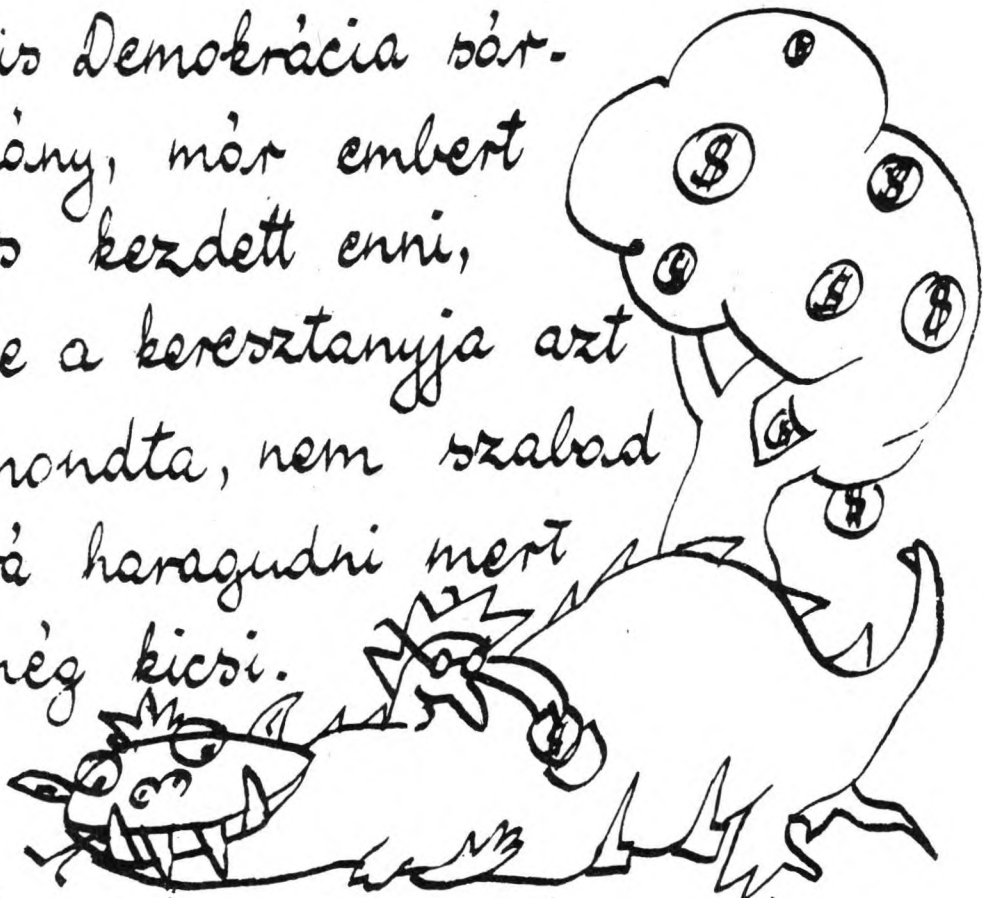 is Demokrácia sár-
ány, már embert
s kezdett enni,
e a keresztanyja azt
mondta, nem szabad
á haragudni mert
ég kicsi.
$
$
$
$
$
$
$
$
$